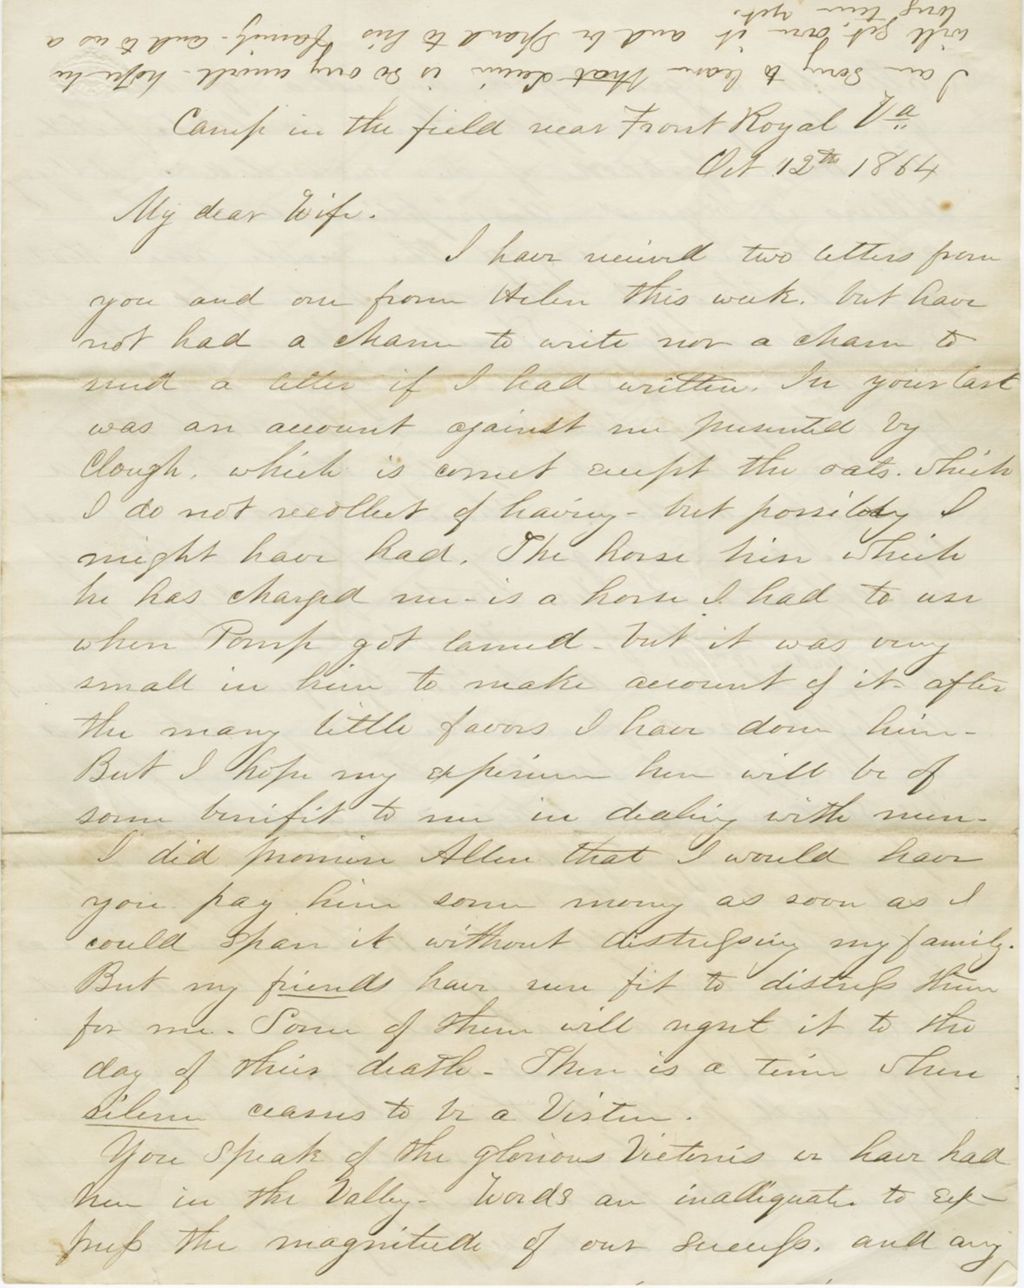 I am Sorry to learn that Levi is so very unwell - hope he
will get over it and be Spared to his family - and to us a
long time yet.
Camp in the field near Front Royal Va
Oct 12th 1864
My dear Wife.
I have received two letters from
you and one from Helen this week. but have
not had a chance to write nor a chance to
send a letter if I had written. In your last
was an account against me presented by
Clough. which is correct except the oats. which
I do not recollect of having - but possibly I
might have had. The horse hire which
he has charged me - is a horse I had to use
when Pomp got lamed - but it was very
small in him to make account of it - after
the many little favors I have done him -
But I hope my experience here will be of
some benifit to me in dealing with men -
I did promise Allen that I would have
you pay him some money as soon as I
could Spare it without distressing my family.
But my friends have seen fit to distress them
for me - Some of them will regret it to the
day of their death - There is a time when
silence ceases to be a Virtue.
You Speak of the glorious Victories we have had
here in the Valley - Words are inadiquate to exp-
press the magnitude of our success. and any